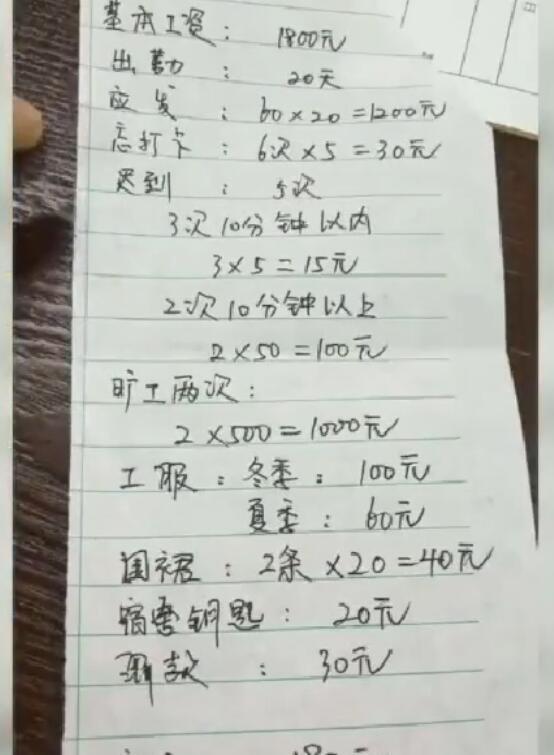 基本工资: 1800元
出勤: 20天
应发: 60×20=1200元
忘打卡: 6次×5=30元
迟到: 5次
3次10分钟以内
3×5=15元
2次10分钟以上
2×50=100元
旷工两次:
2×500=1000元
工服:冬季:100元
夏季:60元
围裙:2条×20=40元
宿舍钥匙:20元
款:30元